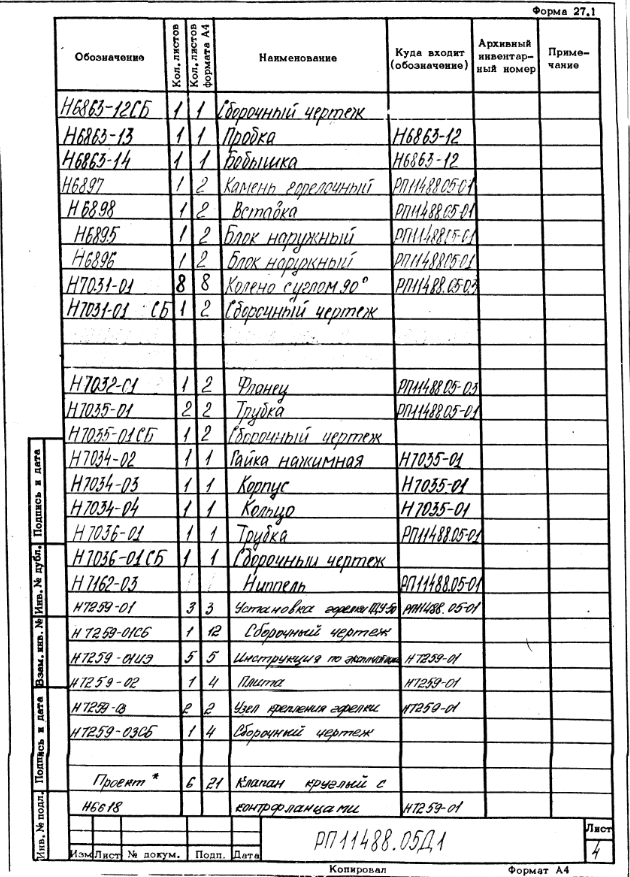 Форма 27.1
Обозначение Кол. листов Кол. листов формата А4 Наименование Куда входит (обозначение) Архивный инвентар-ный номер Приме-чание
Н6863-12СБ 1 1 Сборочный чертеж
Н6863-13 1 1 Пробка Н6863-12
Н6863-14 1 1 Бобышка Н6863-12
Н6897 1 2 Камень горелочный РП11488.05-01
Н6898 1 2 Вставка РП11488.05-01
Н6895 1 2 Блок наружный РП11488.05-01
Н6896 1 2 Блок наружный РП11488.05-01
Н7031-01 8 8 Колено с углом 90° РП11488.05-03
Н7031-01 СБ 1 2 Сборочный чертеж
Н7032-01 1 2 Фланец РП11488.05-03
Н7035-01 2 2 Трубка РП11488.05-01
Н7035-01СБ 1 2 Сборочный чертеж
Н7034-02 1 1 Гайка нажимная Н7035-01
Н7034-03 1 1 Корпус Н7035-01
Н7034-04 1 1 Кольцо Н7035-01
Н7036-01 1 1 Трубка РП11488.05-01
Н7036-01СБ 1 1 Сборочный чертеж
Н7162-03 Ниппель РП11488.05-01
Н7259-01 3 3 Установка горелки РП11488.05-01
Н7259-01СБ 1 12 Сборочный чертеж
Н7259-01ИЭ 5 5 Инструкция по эксплуатации Н7259-01
Н7259-02 1 4 Плита Н7259-01
Н7259-03 2 2 Узел крепления горелки Н7259-01
Н7259-03СБ 1 4 Сборочный чертеж
Проект * 6 21 Клапан круглый с
Н6618 контрфланцами Н7259-01
Инв. № подл. Подпись и дата Взам. инв. № Инв. № дубл. Подпись и дата
Изм Лист № докум. Подп. Дата
РП11488.05Д1
Лист
4
Копировал Формат А4